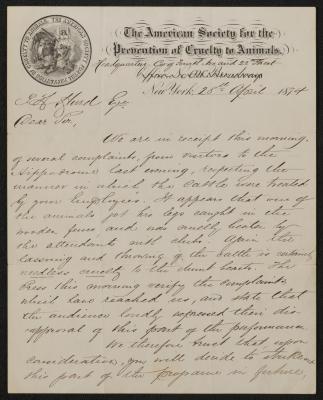 The American Society for the
Prevention of Cruelty to Animals.
Headquarters, Cor of Fourth Ave and 22 Street
New York, 28th April 1874
Hurd Esq
Dear Sir,
We are in receipt this morning
of several complaints, from visitors to the
Hippodrome last evening, respecting the
manner in which the cattle were treated
by your employees. It appears that one of
the animals got his legs caught in the
wooden fence, and was cruelly beaten by
the attendants with clubs. Again the
lassoing and throwing of the cattle is extremely
needless cruelty to the dumb beasts. The
Press this morning verify the complaints
which have reached us, and state that
the audience loudly expressed their dis-
approval of this part of the performance.
We therefore trust that upon
consideration, you will decide to strike out
this part of the programe in future,